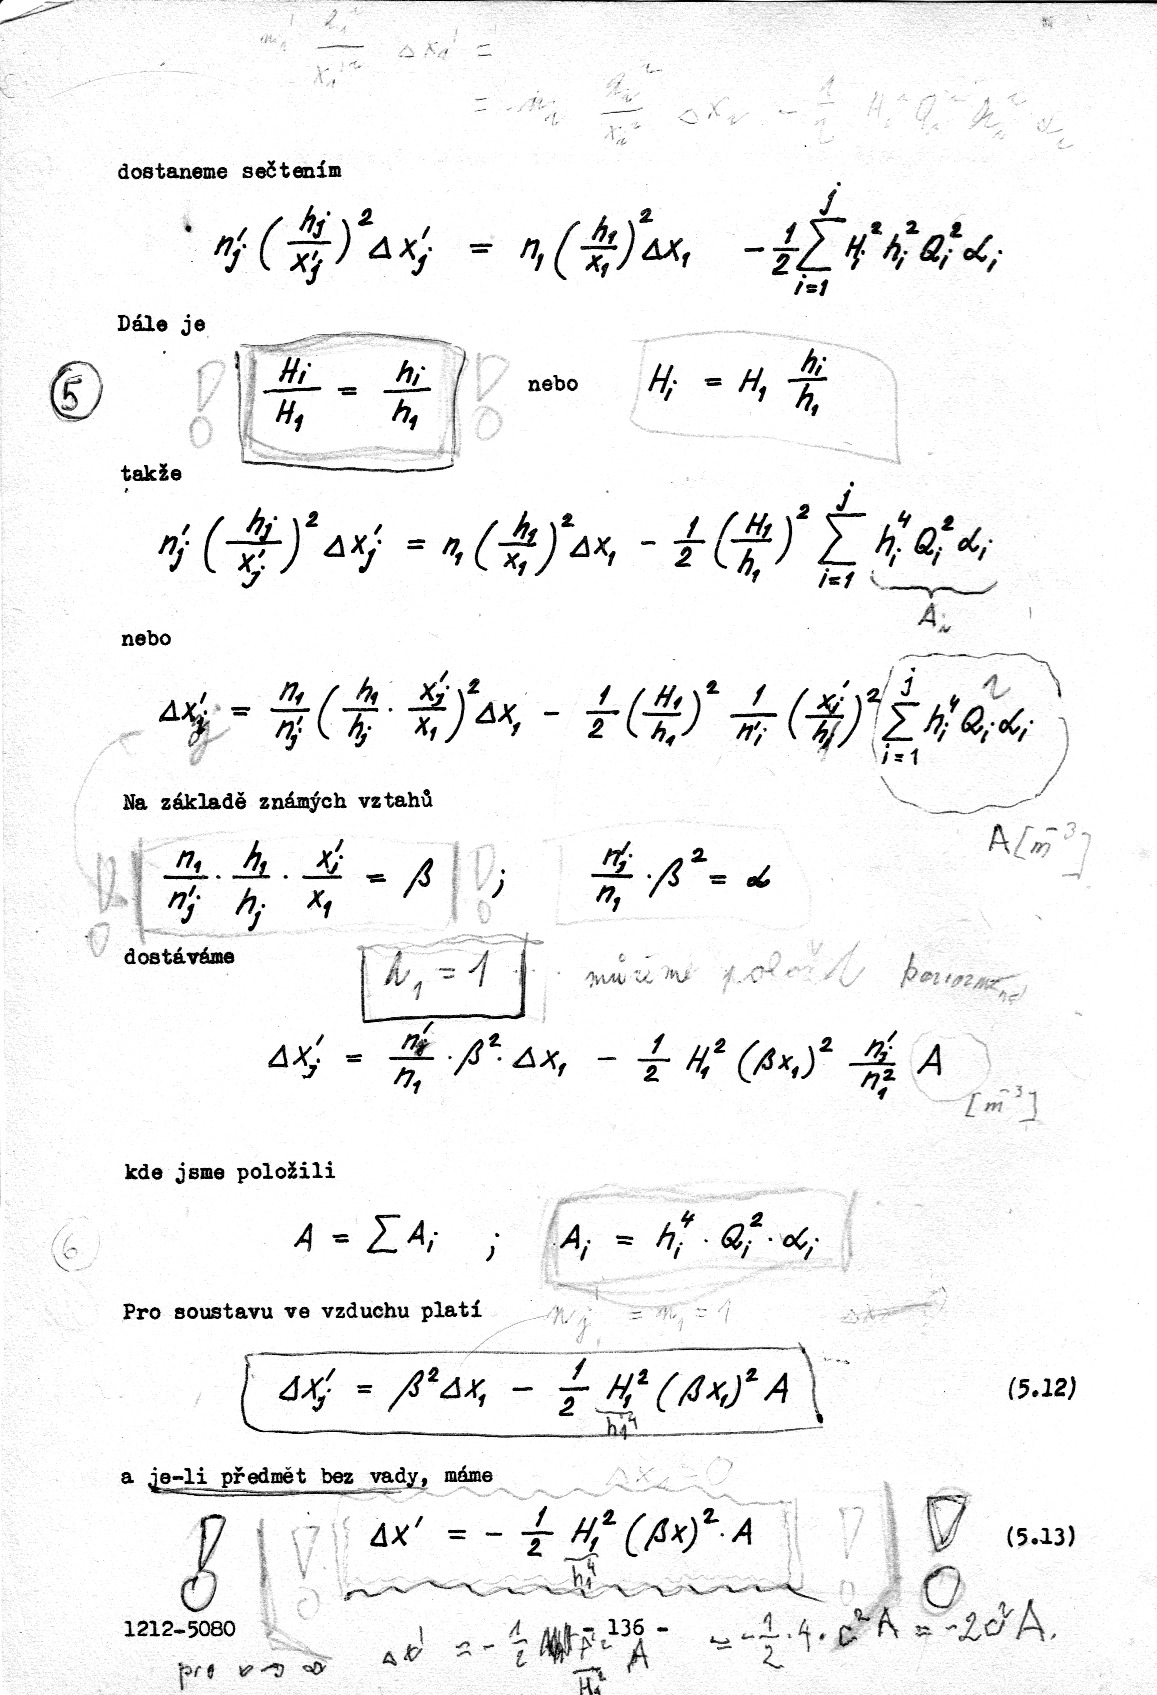 dostaneme sečtením
n'j (hj/x'j)² Δx'j = n1 (h1/x1)² Δx1 - 1/2 Σ(i=1..j) Hi² hi² Qi² αi
Dále je
5
Hi/H1 = hi/h1 nebo Hi = H1 hi/h1
takže
n'j (hj/x'j)² Δx'j = n1 (h1/x1)² Δx1 - 1/2 (H1/h1)² Σ(i=1..j) hi⁴ Qi² αi
Ai
nebo
Δx'j = n1/n'j (h1/hj · x'j/x1)² Δx1 - 1/2 (H1/h1)² 1/n'i (x'j/hj)² Σ(i=1..j) hi⁴ Qi² αi
A [m⁻³]
Na základě známých vztahů
n1/n'j · h1/hj · x'j/x1 = β ; n'j/n1 · β² = α
dostáváme
h1 = 1 můžeme položit
Δx'j = n'j/n1 · β² · Δx1 - 1/2 H1² (βx1)² n'j/n1² A
[m⁻³]
kde jsme položili
6
A = Σ Ai ; Ai = hi⁴ · Qi² · αi
Pro soustavu ve vzduchu platí n'j = n1 = 1
Δx'j = β² Δx1 - 1/2 H1² (βx1)² A (5.12)
h1⁴
a je-li předmět bez vady, máme Δx1 = 0
Δx' = - 1/2 H1² (βx)² · A (5.13)
h1⁴
1212-5080 - 136 -